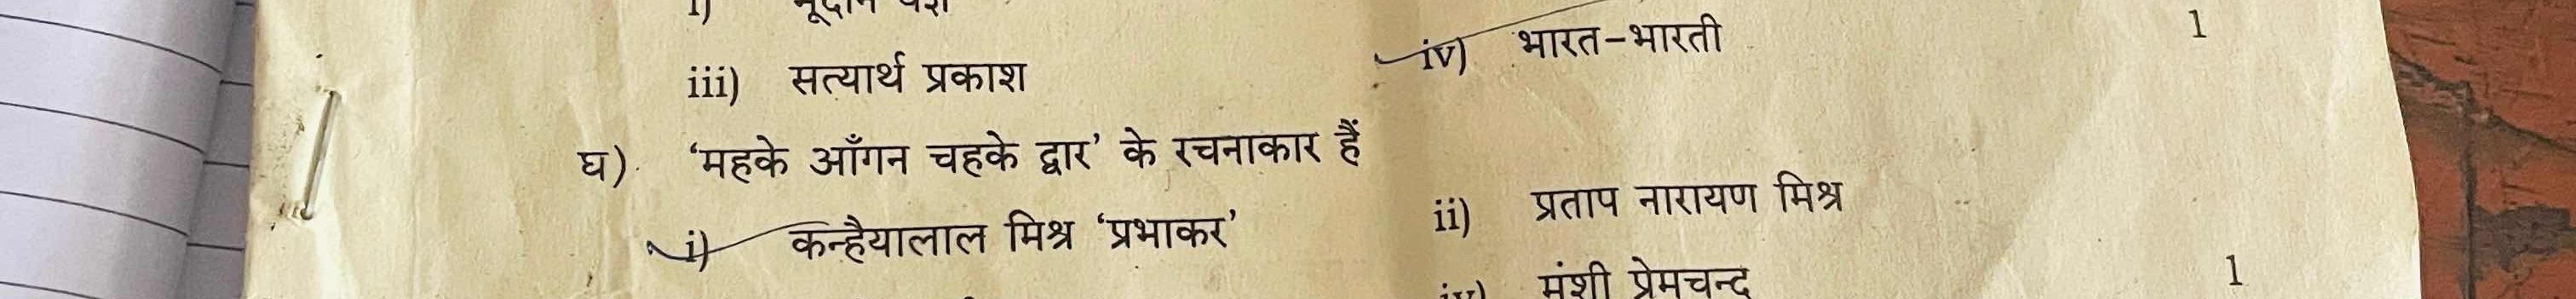 iii) सत्यार्थ प्रकाश iv) भारत-भारती 1
घ). 'महके आँगन चहके द्वार' के रचनाकार हैं
i) कन्हैयालाल मिश्र 'प्रभाकर' ii) प्रताप नारायण मिश्र
iv) मुंशी प्रेमचन्द 1